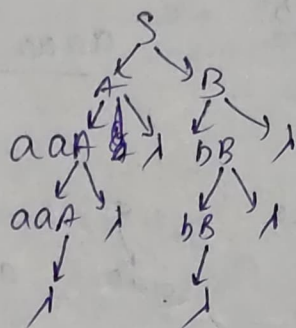 S
A B
aaA λ bB λ
aaA λ bB λ
λ λ